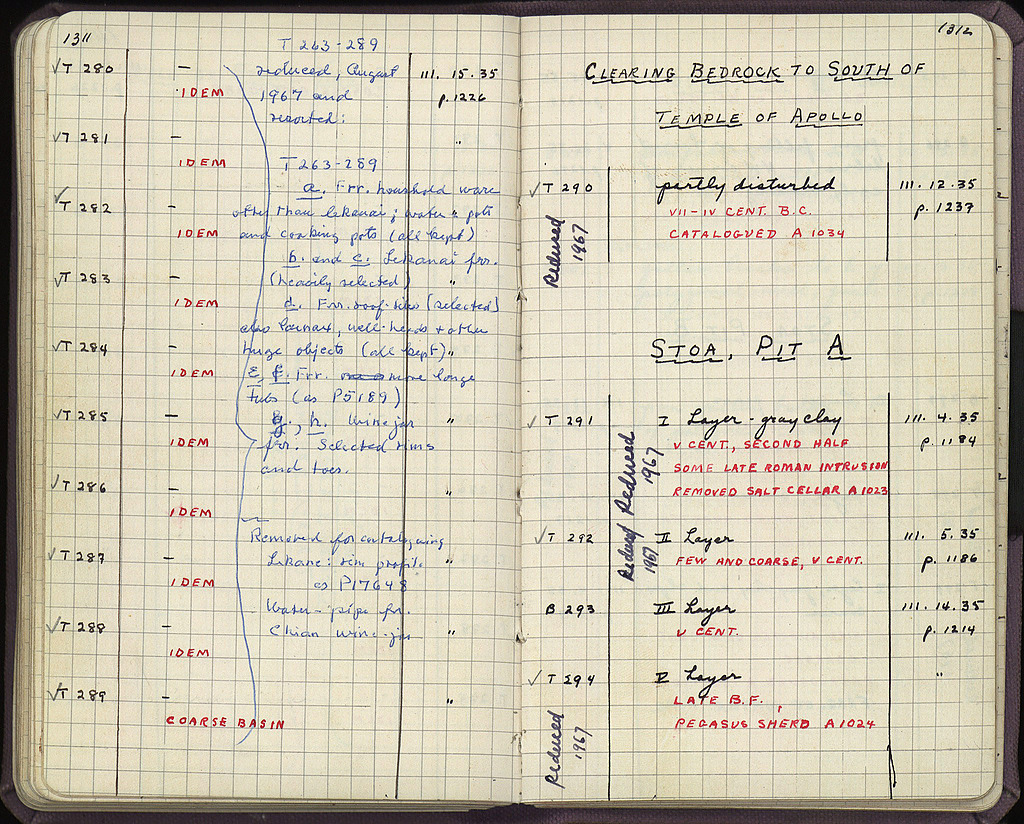 1311
T 263-289
√T 280 — reduced, August III. 15. 35
IDEM 1967 and p. 1226
resorted:
√T 281 — "
IDEM T 263-289
a. Frr. household ware
√T 282 other than lekanai; water pots
IDEM and cooking pots (all kept)
b. and c. Lekanai frr.
√T 283 — (heavily selected) "
IDEM d. Frr. roof-tiles (selected)
also well-heads + other
√T 284 — huge objects (all kept) "
IDEM E, f. Frr. more large
Tubs (as P5189)
√T 285 — g, h. Wine jar "
IDEM frr. Selected rims
and toes.
√T 286 — "
IDEM
Removed for cataloguing
√T 287 — Lekane: rim profile "
IDEM as P17648
Water-pipe fr.
√T 288 — Chian wine-jar "
IDEM
√T 289 — "
COARSE BASIN
1312
CLEARING BEDROCK TO SOUTH OF
TEMPLE OF APOLLO
√T 290 partly disturbed III. 12. 35
VII-IV CENT. B.C. p. 1237
CATALOGUED A 1034
Reduced
1967
STOA, PIT A
√T 291 I Layer - gray clay III. 4. 35
V CENT., SECOND HALF p. 1184
SOME LATE ROMAN INTRUSION
REMOVED SALT CELLAR A 1023
Reduced
1967
√T 292 II Layer III. 5. 35
FEW AND COARSE, V CENT. p. 1186
Reduced
1967
B 293 III Layer III. 14. 35
V CENT. p. 1214
√T 294 V Layer "
LATE B.F.,
PEGASUS SHERD A 1024
Reduced
1967